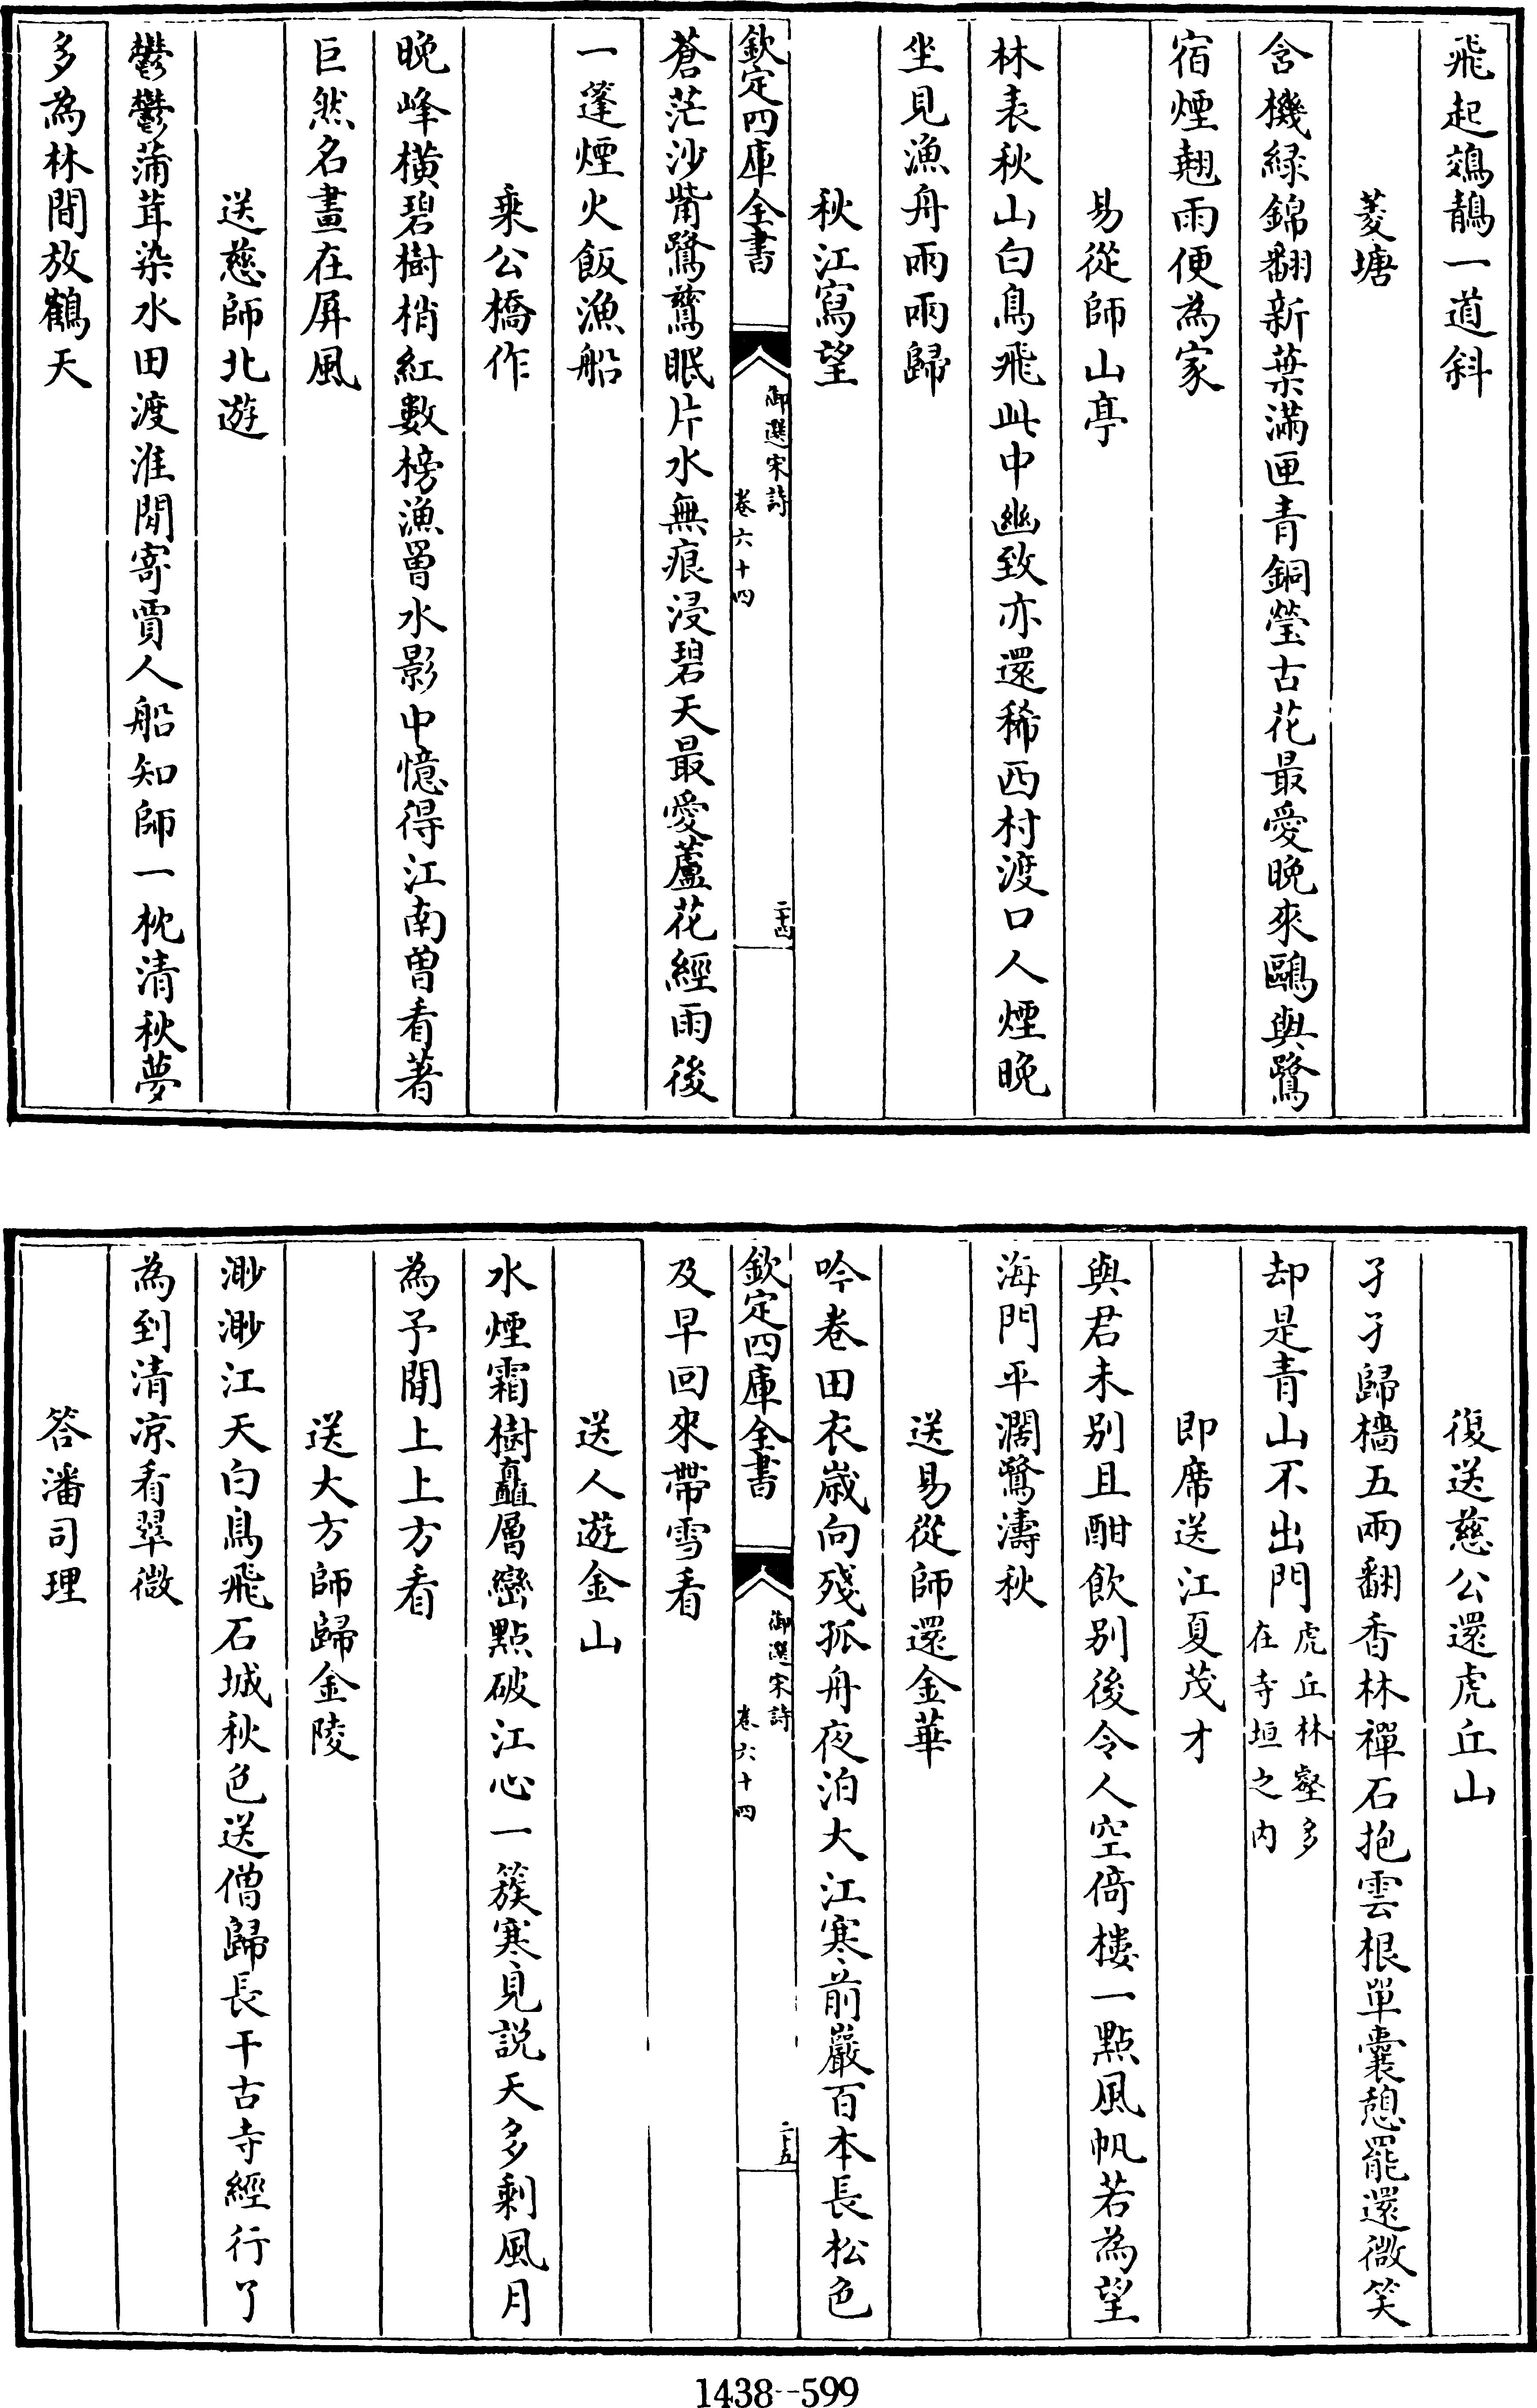 飛起鵁鶄一道斜
菱塘
含機緑錦翻新葉滿匣青銅瑩古花最愛晚來鷗與鷺
宿煙翹雨便為家
易從師山亭
林表秋山白鳥飛此中幽致亦還稀西村渡口人煙晚
坐見漁舟兩兩歸
秋江寫望
欽定四庫全書
御選宋詩
卷六十四
二十四
蒼茫沙觜鷺鷥眠片水無痕浸碧天最愛蘆花經雨後
一篷煙火飯漁船
乘公橋作
晚峰橫碧樹梢紅數榜漁罾水影中憶得江南曽看著
巨然名畫在屏風
送慈師北遊
鬱鬱蒲茸染水田渡淮閒寄賈人船知師一枕清秋夢
多為林間放鶴天
復送慈公還虎丘山
孑孑歸檣五兩翻香林禪石抱雲根單囊憩罷還微笑
却是青山不出門虎丘林壑多在寺垣之内
即席送江夏茂才
與君未别且酣飲别後令人空倚樓一點風帆若為望
海門平濶鷺濤秋
送易從師還金華
吟巻田衣歳向殘孤舟夜泊大江寒前巖百本長松色
欽定四庫全書
御選宋詩
卷六十四
二十五
及早回來帶雪看
送人遊金山
水煙霜樹矗層巒點破江心一簇寒見説天多剩風月
為予閒上上方看
送大方師歸金陵
渺渺江天白鳥飛石城秋色送僧歸長干古寺經行了
為到清凉看翠微
答潘司理
1438--599